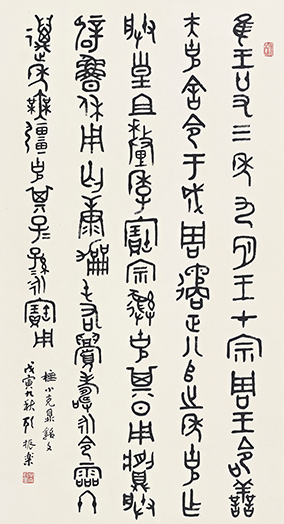 隹王廿又三年九月王才宗周王令譱
夫克舍令于成周遹正八𠂤之年克乍
朕皇且釐季寶宗彝克其日用𩰬朕
辟魯休用匄康屯右眉壽永令霝冬
邁年無疆克其子子孫孫永寶用
小克鼎銘文
戊寅九秋振樂